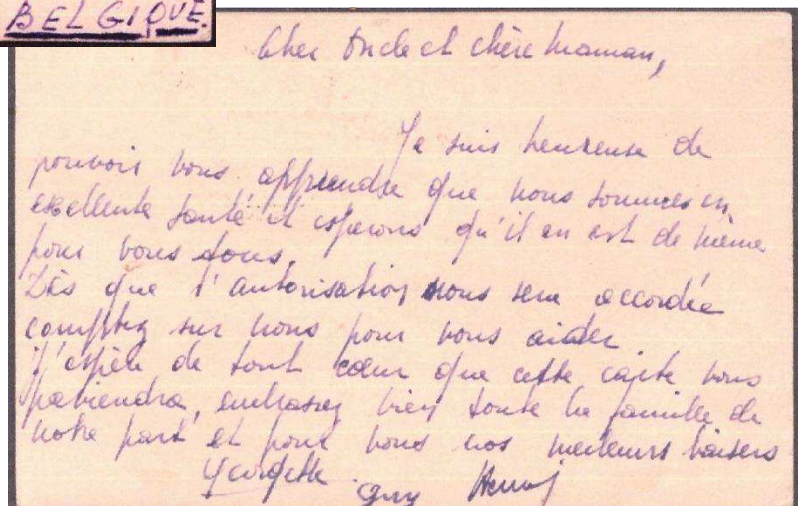 BELGIQUE.
Cher Oncle et chère Maman,
Je suis heureuse de
pouvoir vous apprendre que nous sommes en
excellente santé et espérons qu'il en est de même
pour vous tous.
Dès que l'autorisation nous sera accordée
comptez sur nous pour vous aider.
J'espère de tout cœur que cette carte vous
parviendra, embrassez bien toute la famille de
notre part et pour vous nos meilleurs baisers
Georgette Guy Henri